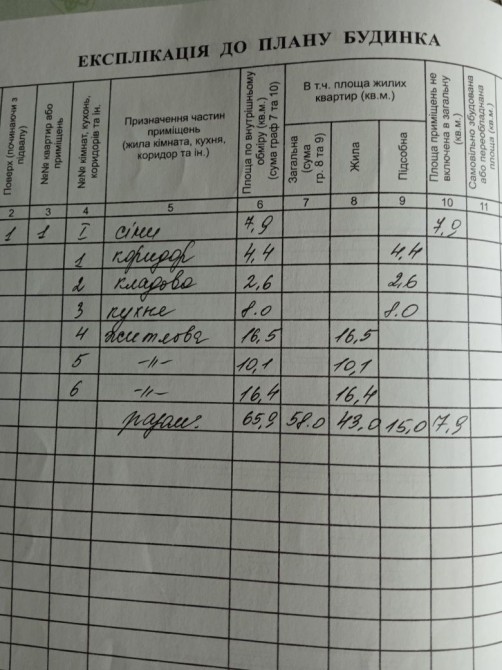 ЕКСПЛІКАЦІЯ ДО ПЛАНУ БУДИНКА
Поверх (починаючи з підвалу)
№№ квартир або приміщень
№№ кімнат, кухонь, коридорів та ін.
Призначення частин приміщень (жила кімната, кухня, коридор та ін.)
Площа по внутрішньому обміру (кв.м.) (сума граф 7 та 10)
В т.ч. площа жилих квартир (кв.м.)
Загальна (сума гр. 8 та 9)
Жила
Підсобна
Площа приміщень не включена в загальну (кв.м.)
Самовільно збудована або переобладнана площа (кв.м.)
2 3 4 5 6 7 8 9 10 11
1 1 I сіни 7,9 7,9
1 коридор 4,4 4,4
2 кладова 2,6 2,6
3 кухне 8.0 8.0
4 житлова 16,5 16,5
5 -"- 10,1 10,1
6 -"- 16,4 16,4
разом: 65,9 58.0 43,0 15,0 7,9